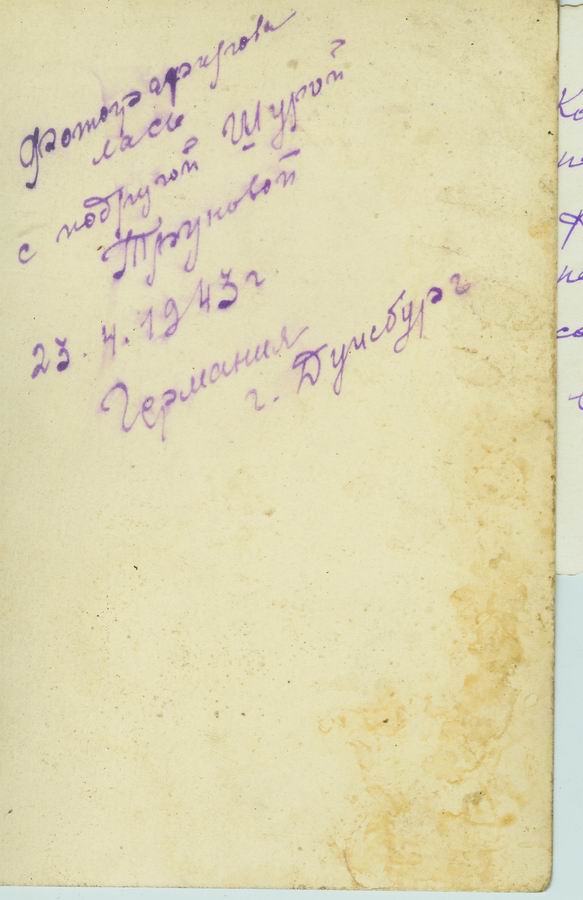 Фотографирова
лась
с подругой Шурой
Труновой
23.4.1943 г
Германия
г. Дуисбург